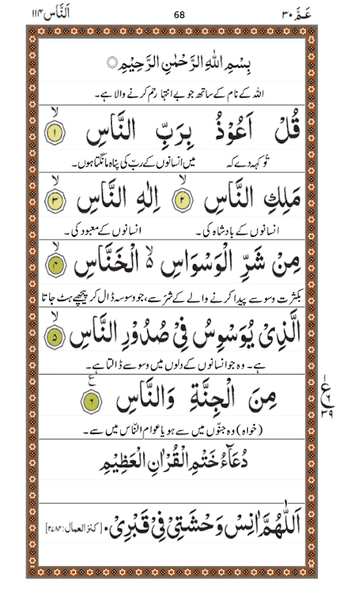 عَمَّ ٣٠ 68 اَلنَّاس ١١٤
بِسْمِ اللّٰهِ الرَّحْمٰنِ الرَّحِيْمِ
اللہ کے نام کے ساتھ جو بے انتہا رحم کرنے والا ہے۔
قُلْ اَعُوْذُ بِرَبِّ النَّاسِ ۙ﴿۱﴾
تُو کہہ دے کہ میں انسانوں کے ربّ کی پناہ مانگتا ہوں۔
مَلِكِ النَّاسِ ۙ﴿۲﴾ اِلٰهِ النَّاسِ ۙ﴿۳﴾
انسانوں کے بادشاہ کی۔ انسانوں کے معبود کی۔
مِنْ شَرِّ الْوَسْوَاسِ ۙ۬ الْخَنَّاسِ ۙ﴿۴﴾
بکثرت وسوسے پیدا کرنے والے کے شر سے، جو وسوسہ ڈال کر پیچھے ہٹ جاتا
الَّذِيْ يُوَسْوِسُ فِيْ صُدُوْرِ النَّاسِ ۙ﴿۵﴾
ہے۔ وہ جو انسانوں کے دلوں میں وسوسے ڈالتا ہے۔
مِنَ الْجِنَّةِ وَالنَّاسِ ﴿۶﴾
(خواہ) وہ جنّوں میں سے ہو یا عوام النّاس میں سے۔
دُعَآءُ خَتْمِ الْقُرْاٰنِ الْعَظِيْمِ
اَللّٰهُمَّ اٰنِسْ وَحْشَتِيْ فِيْ قَبْرِيْ۔ [کنز العمال: ۲۷۸۴]